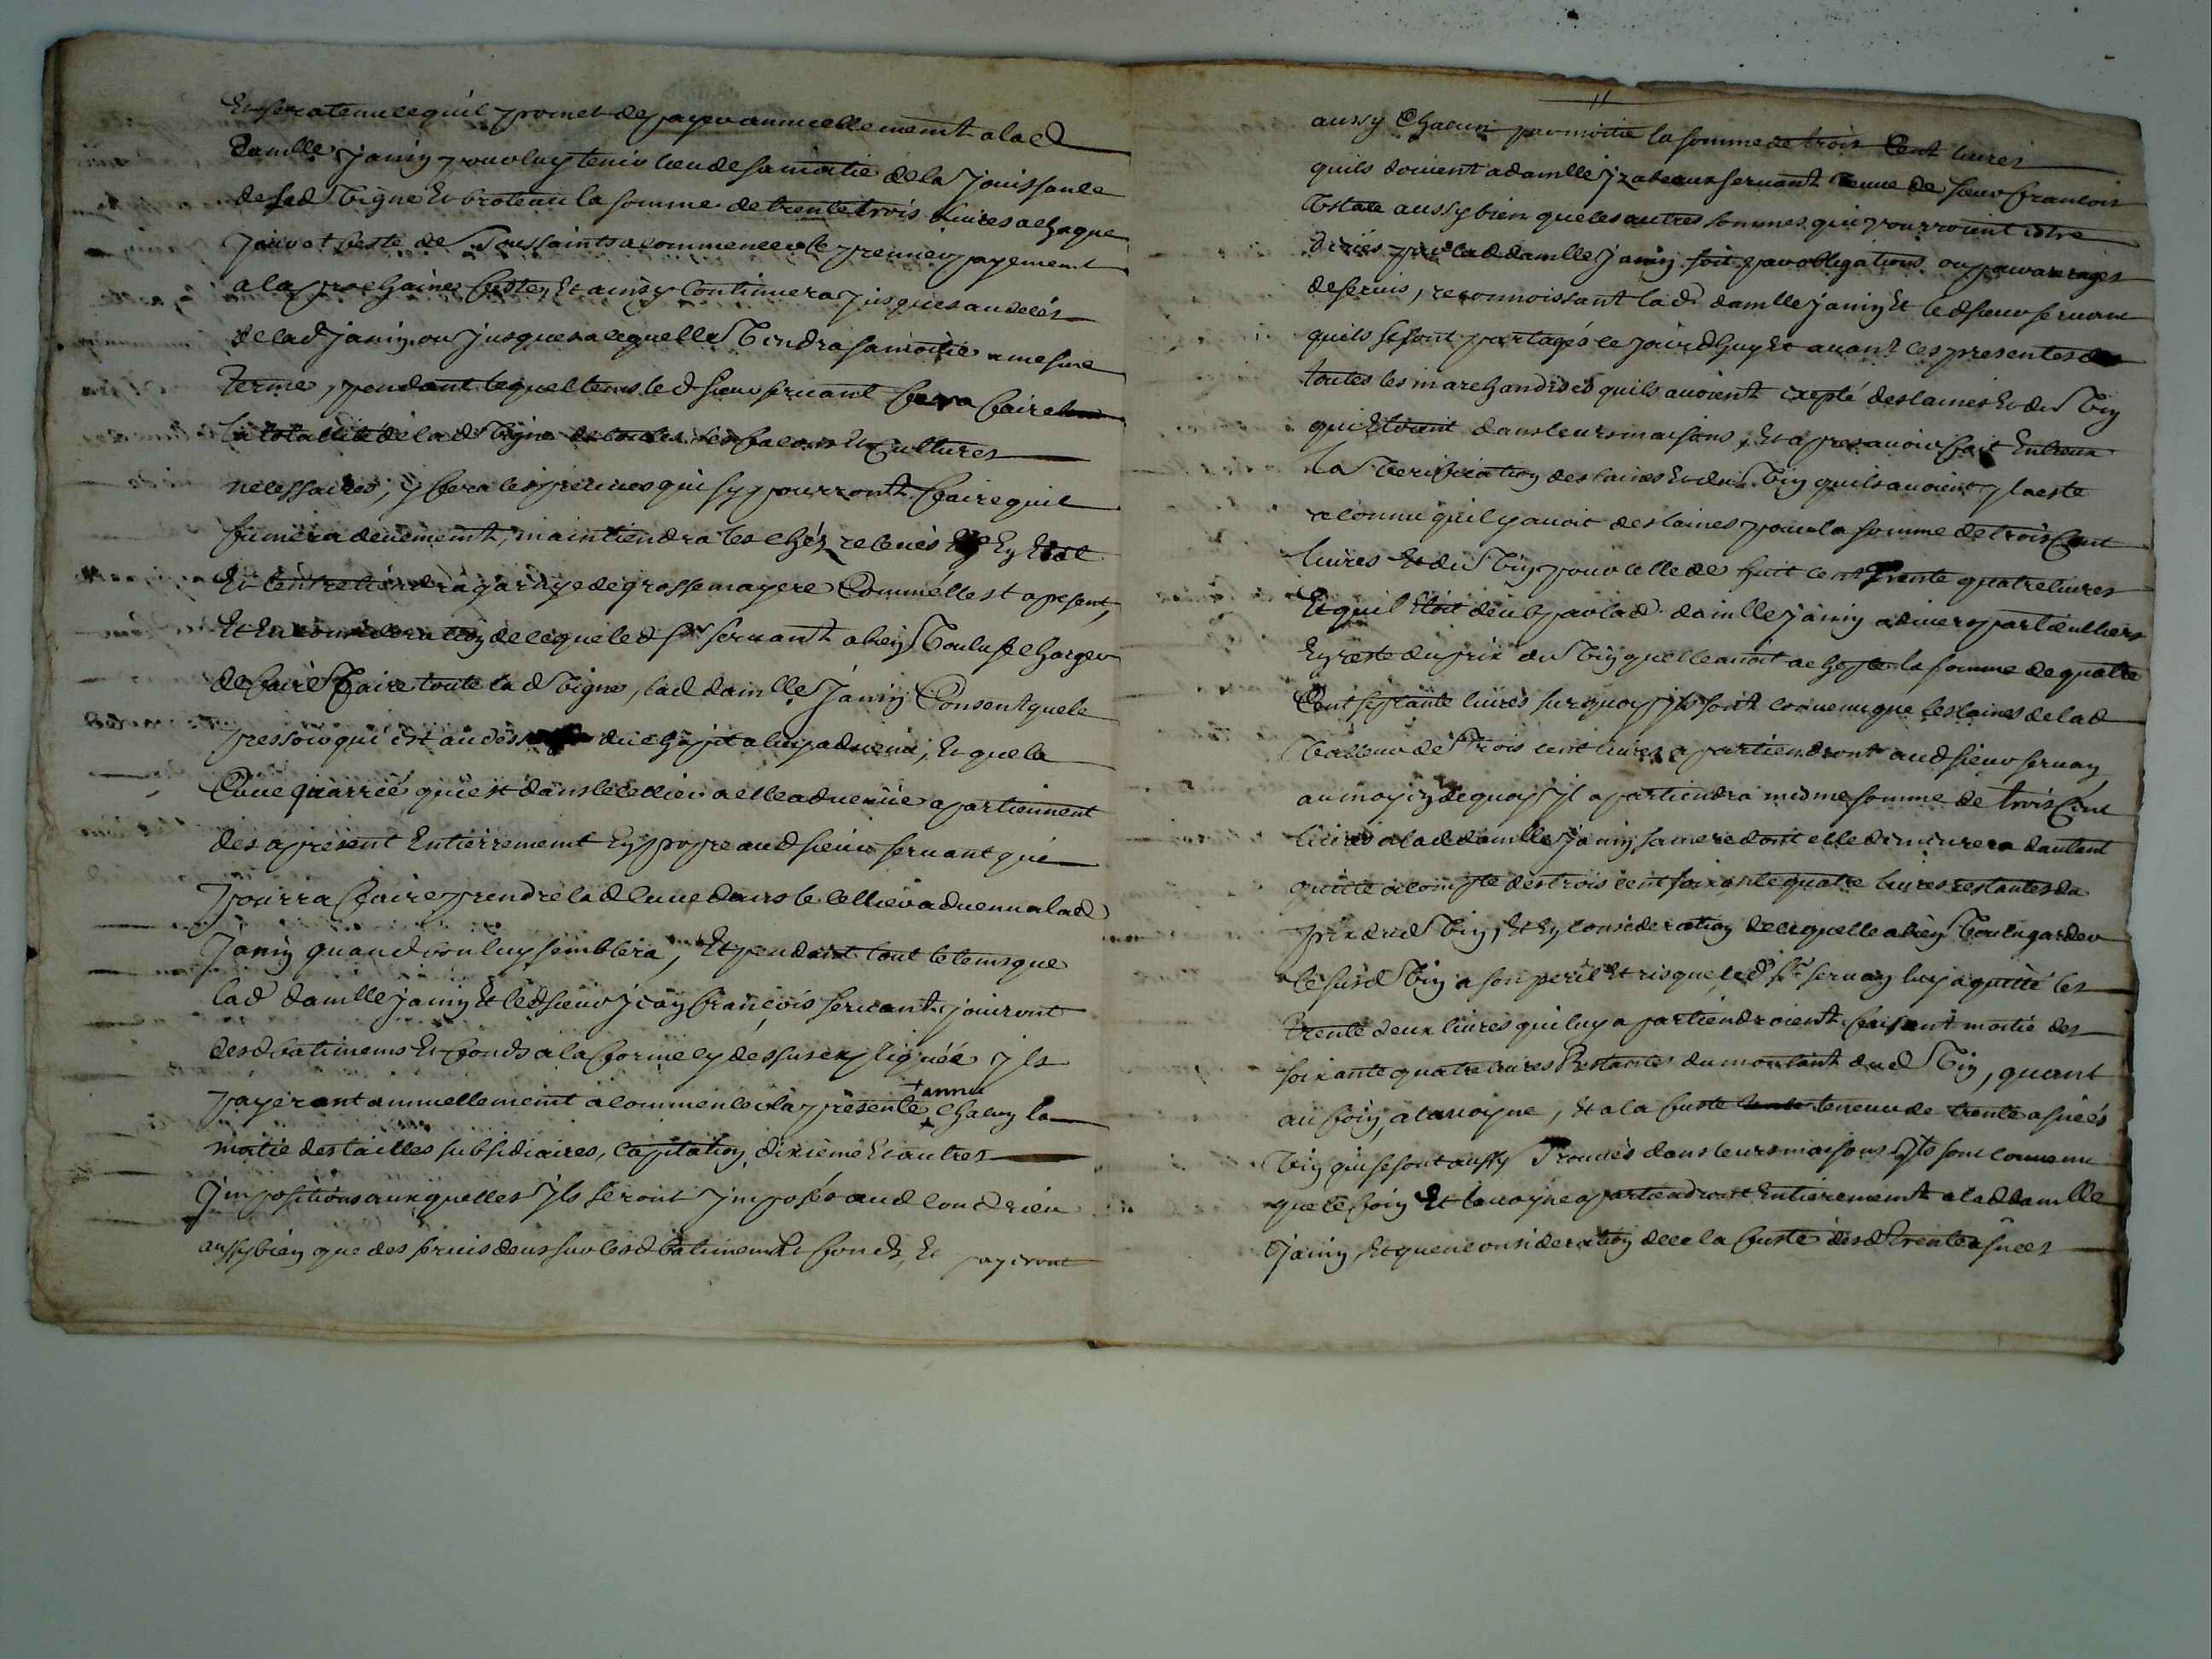 Et sera tenu ce quil promet de payer annuellement a lad
damlle janin pour luy tenir lieu de sa moitié de la jouissance
desd vigne et broteau la somme de trente trois livres achaque
jour et feste de Toussaints a commencer le premier payement
a la prochaine feste, Et ainsy continuera jusques au deces
de lad janin ou jusques a ce quelle vendra sa moitié a mesme
terme, pendant lequel tems led sieur seruant fera faire
la totallité de lad vigne de toutes les facons Et cultures
necessaires, y fera les preuues qui sy pourront faire quil
fumera deuement, maintiendra les chez releués Ey Etat
Et lentretiendra garnye de grosse mayere Comme elle est apresent,
Et En consideration de ce que led sr seruant a biey voulu se charger
de faire faire toute lad vigne, lad damlle janin Consent que le
pressoir qui est au dess du chapit a luy aduenu, Et que la
Cuue quarrée qui est dans le cellier a elle aduenüe apartiennent
des apresent Entierrement Ey propre aud sieur seruant qui
pourra faire prendre lad cuue dans le cellier aduenu a lad
janin quand bon luy semblera, Et pendant tout le tems que
lad damlle janin Et led sieur jean françois seruant jouiront
desd batimens Et fonds a la forme cy dessus expliquée jls
payeront annuellement a commencer la presente + année chacuy la
moitié des tailles subsidiaires, capitation, dixieme Et autres
jmpositions auxquelles jls seront jmposés aud condrieu
aussy biey que des seruis deus sur lesd batimens Et fonds, Et payeront
11
aussy Chacun par moitié la somme de trois Cent liures
quils doiuent a damlle jzabeaux seruant veuue de sieur francois
aussy bien que les autres sommes qui pourroient estre
par lad damlle janin soit par obligations ou par arrerages
de seruis, reconnoissant lad damlle janin Et led sieur seruant
quils se sont partagés ce jourdhuy Et auant ces presentes
toutes les marchandises quils auoient exepté des laines Et du viy
qui Etoient dans leurs maisons, Et apres auoir fait Entreux
la verification des laines Et du viy quils auoient jl a esté
reconnu quil y auoit des laines pour la somme de trois Cent
liures Et du viy pour celle de huit cent trente quatre liures
Et quil Etoit deub par lad damlle janin a diuers particulliers
Ey reste du prix du viy quelle auoit achepté la somme de quatre
Cent septante liures sur quoy jls sont conuenu que les laines de lad
valleur de trois cent liures apartiendront aud sieur seruay
au moyiy de quoy jl apartiendra mesme somme de trois Cent
liures a lad damlle janin sa mere dont elle demeurera dautant
quitte a compte des trois cent soixante quatre liures restantes du
prix dud viy, Et Ey consideration de ce quelle a biey voulu garder
le susd viy a son peril Et risque, led sr seruay luy a quitté les
trente deux liures qui luy apartiendroient faisant moitié des
soixante quatre liures Restantes du montant dud viy, quant
au foiy, alauoyne, Et a la fuste teneur de trente asnées
viy qui se sont aussy Trouués dans leurs maisons jls sont conuenu
que le foiy Et lauoyne apartiendront Entierement a lad damlle
janin, Et quen consideration de ce la fuste desd trente asnées